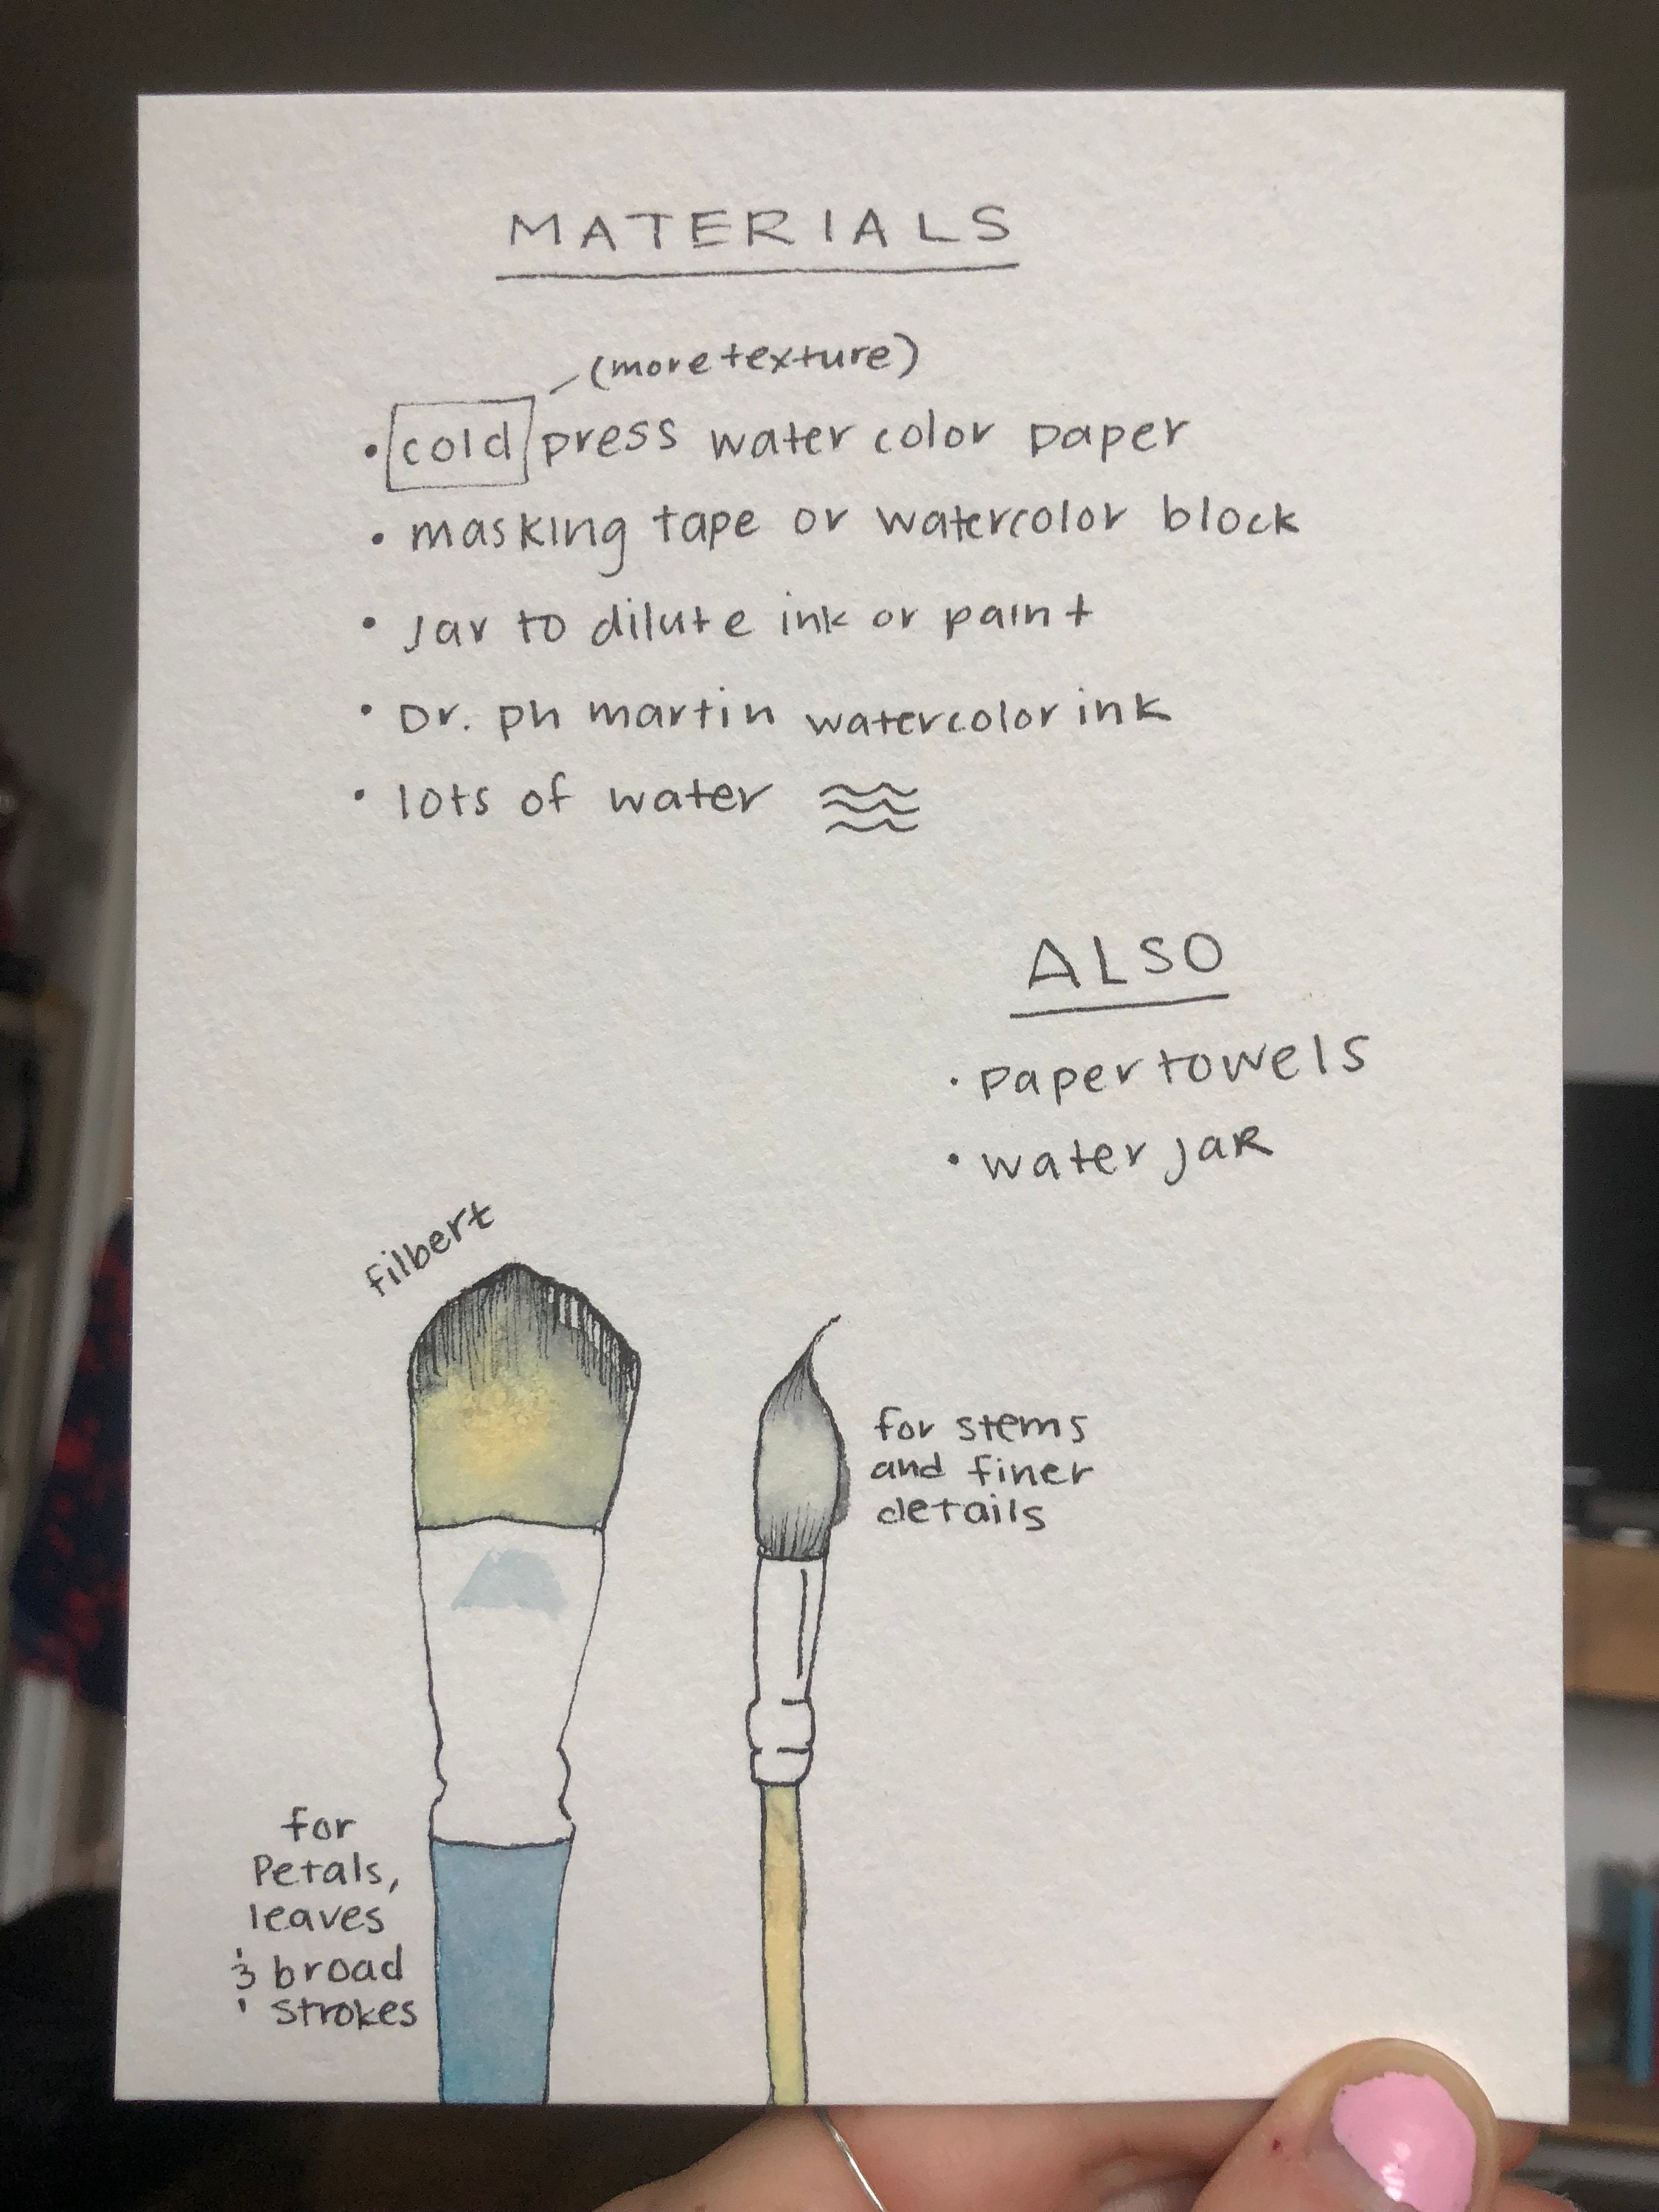 MATERIALS
(more texture)
• cold press water color paper
• masking tape or watercolor block
• Jar to dilute ink or paint
• Dr. ph martin watercolor ink
• lots of water
ALSO
• paper towels
• water jaR
filbert
for stems
and finer
details
for
Petals,
leaves
& broad
strokes